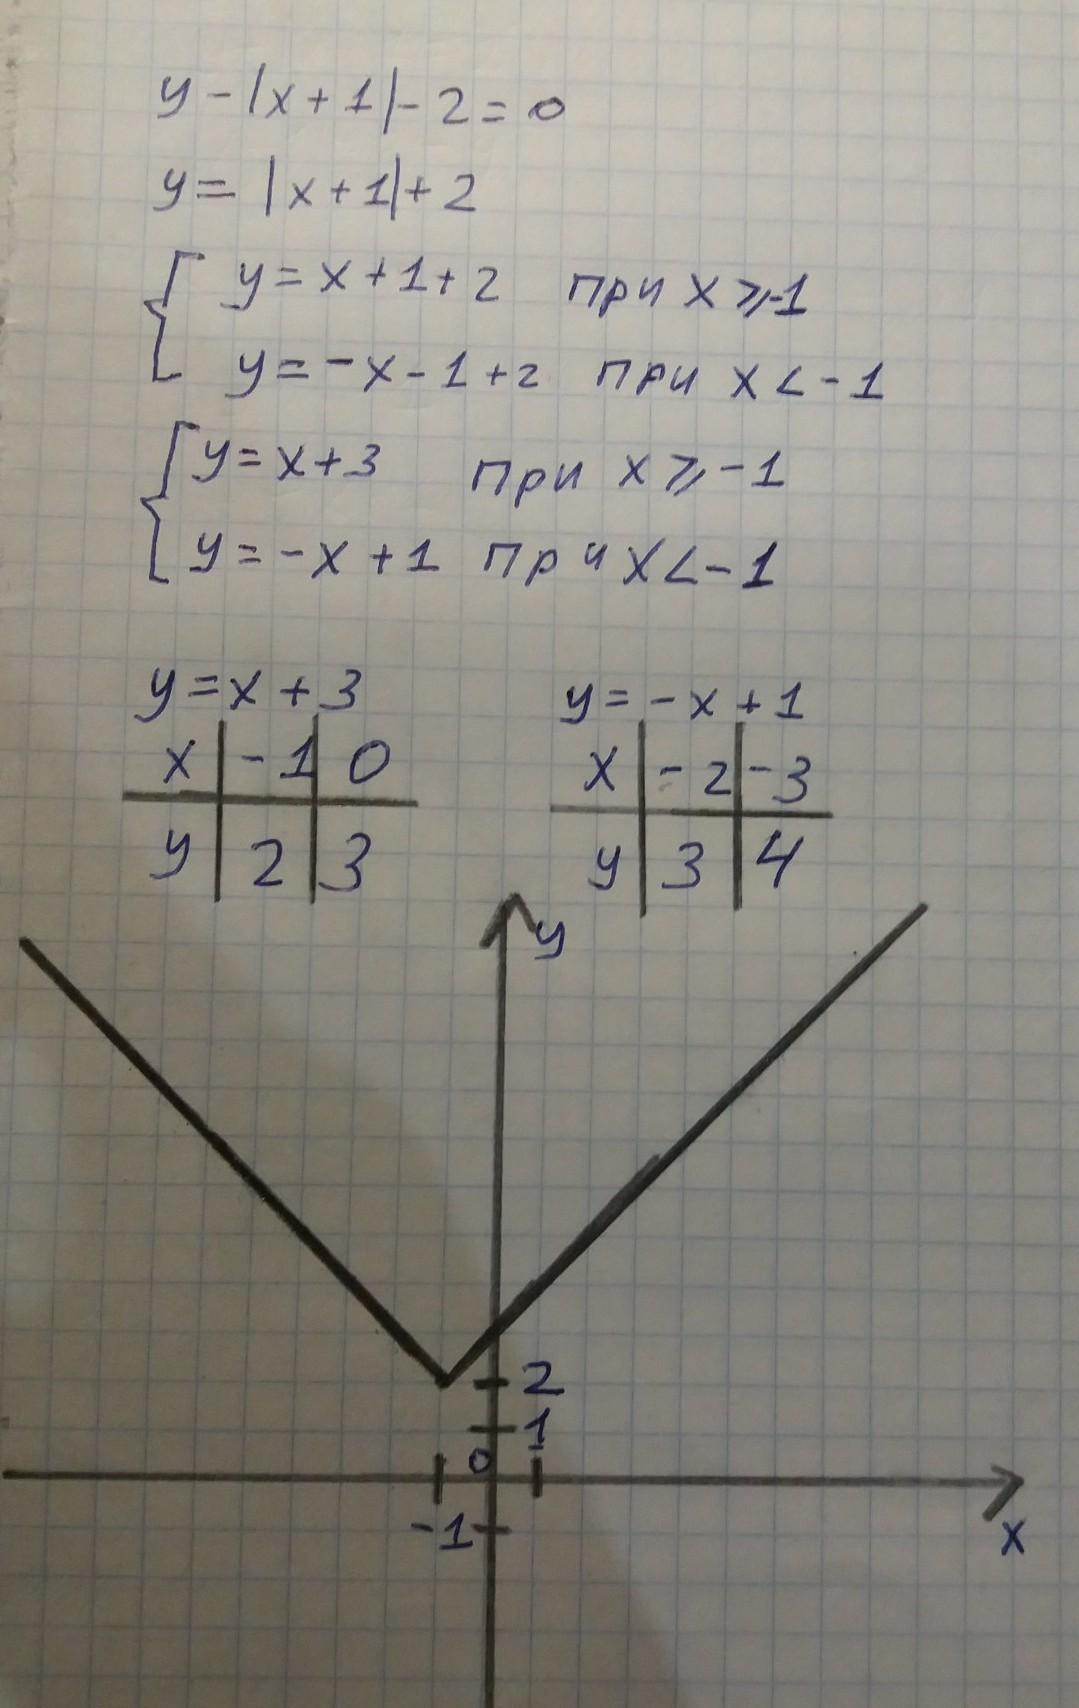 y-|x+1|-2=0
y=|x+1|+2
y=x+1+2 при x⩾-1
y=-x-1+2 при x<-1
y=x+3 при x⩾-1
y=-x+1 при x<-1
y=x+3 y=-x+1
x -1 0 x -2 -3
y 2 3 y 3 4
y
2
1
0 1
-1
x